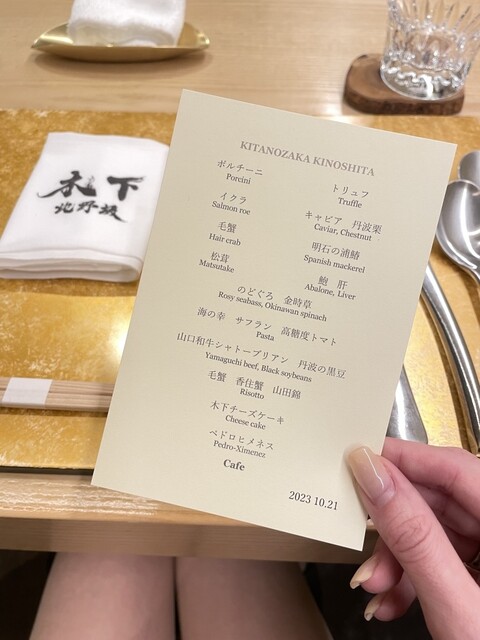 KITANOZAKA KINOSHITA
ポルチーニ
Porcini
トリュフ
Truffle
イクラ
Salmon roe
キャビア 丹波栗
Caviar, Chestnut
毛蟹
Hair crab
明石の浦鰆
Spanish mackerel
松茸
Matsutake
鮑 肝
Abalone, Liver
のどぐろ 金時草
Rosy seabass, Okinawan spinach
海の幸 サフラン 高糖度トマト
Pasta
山口和牛シャトーブリアン 丹波の黒豆
Yamaguchi beef, Black soybeans
毛蟹 香住蟹 山田錦
Risotto
木下チーズケーキ
Cheese cake
ペドロヒメネス
Pedro-Ximenez
Cafe
2023 10.21
木下
北野坂